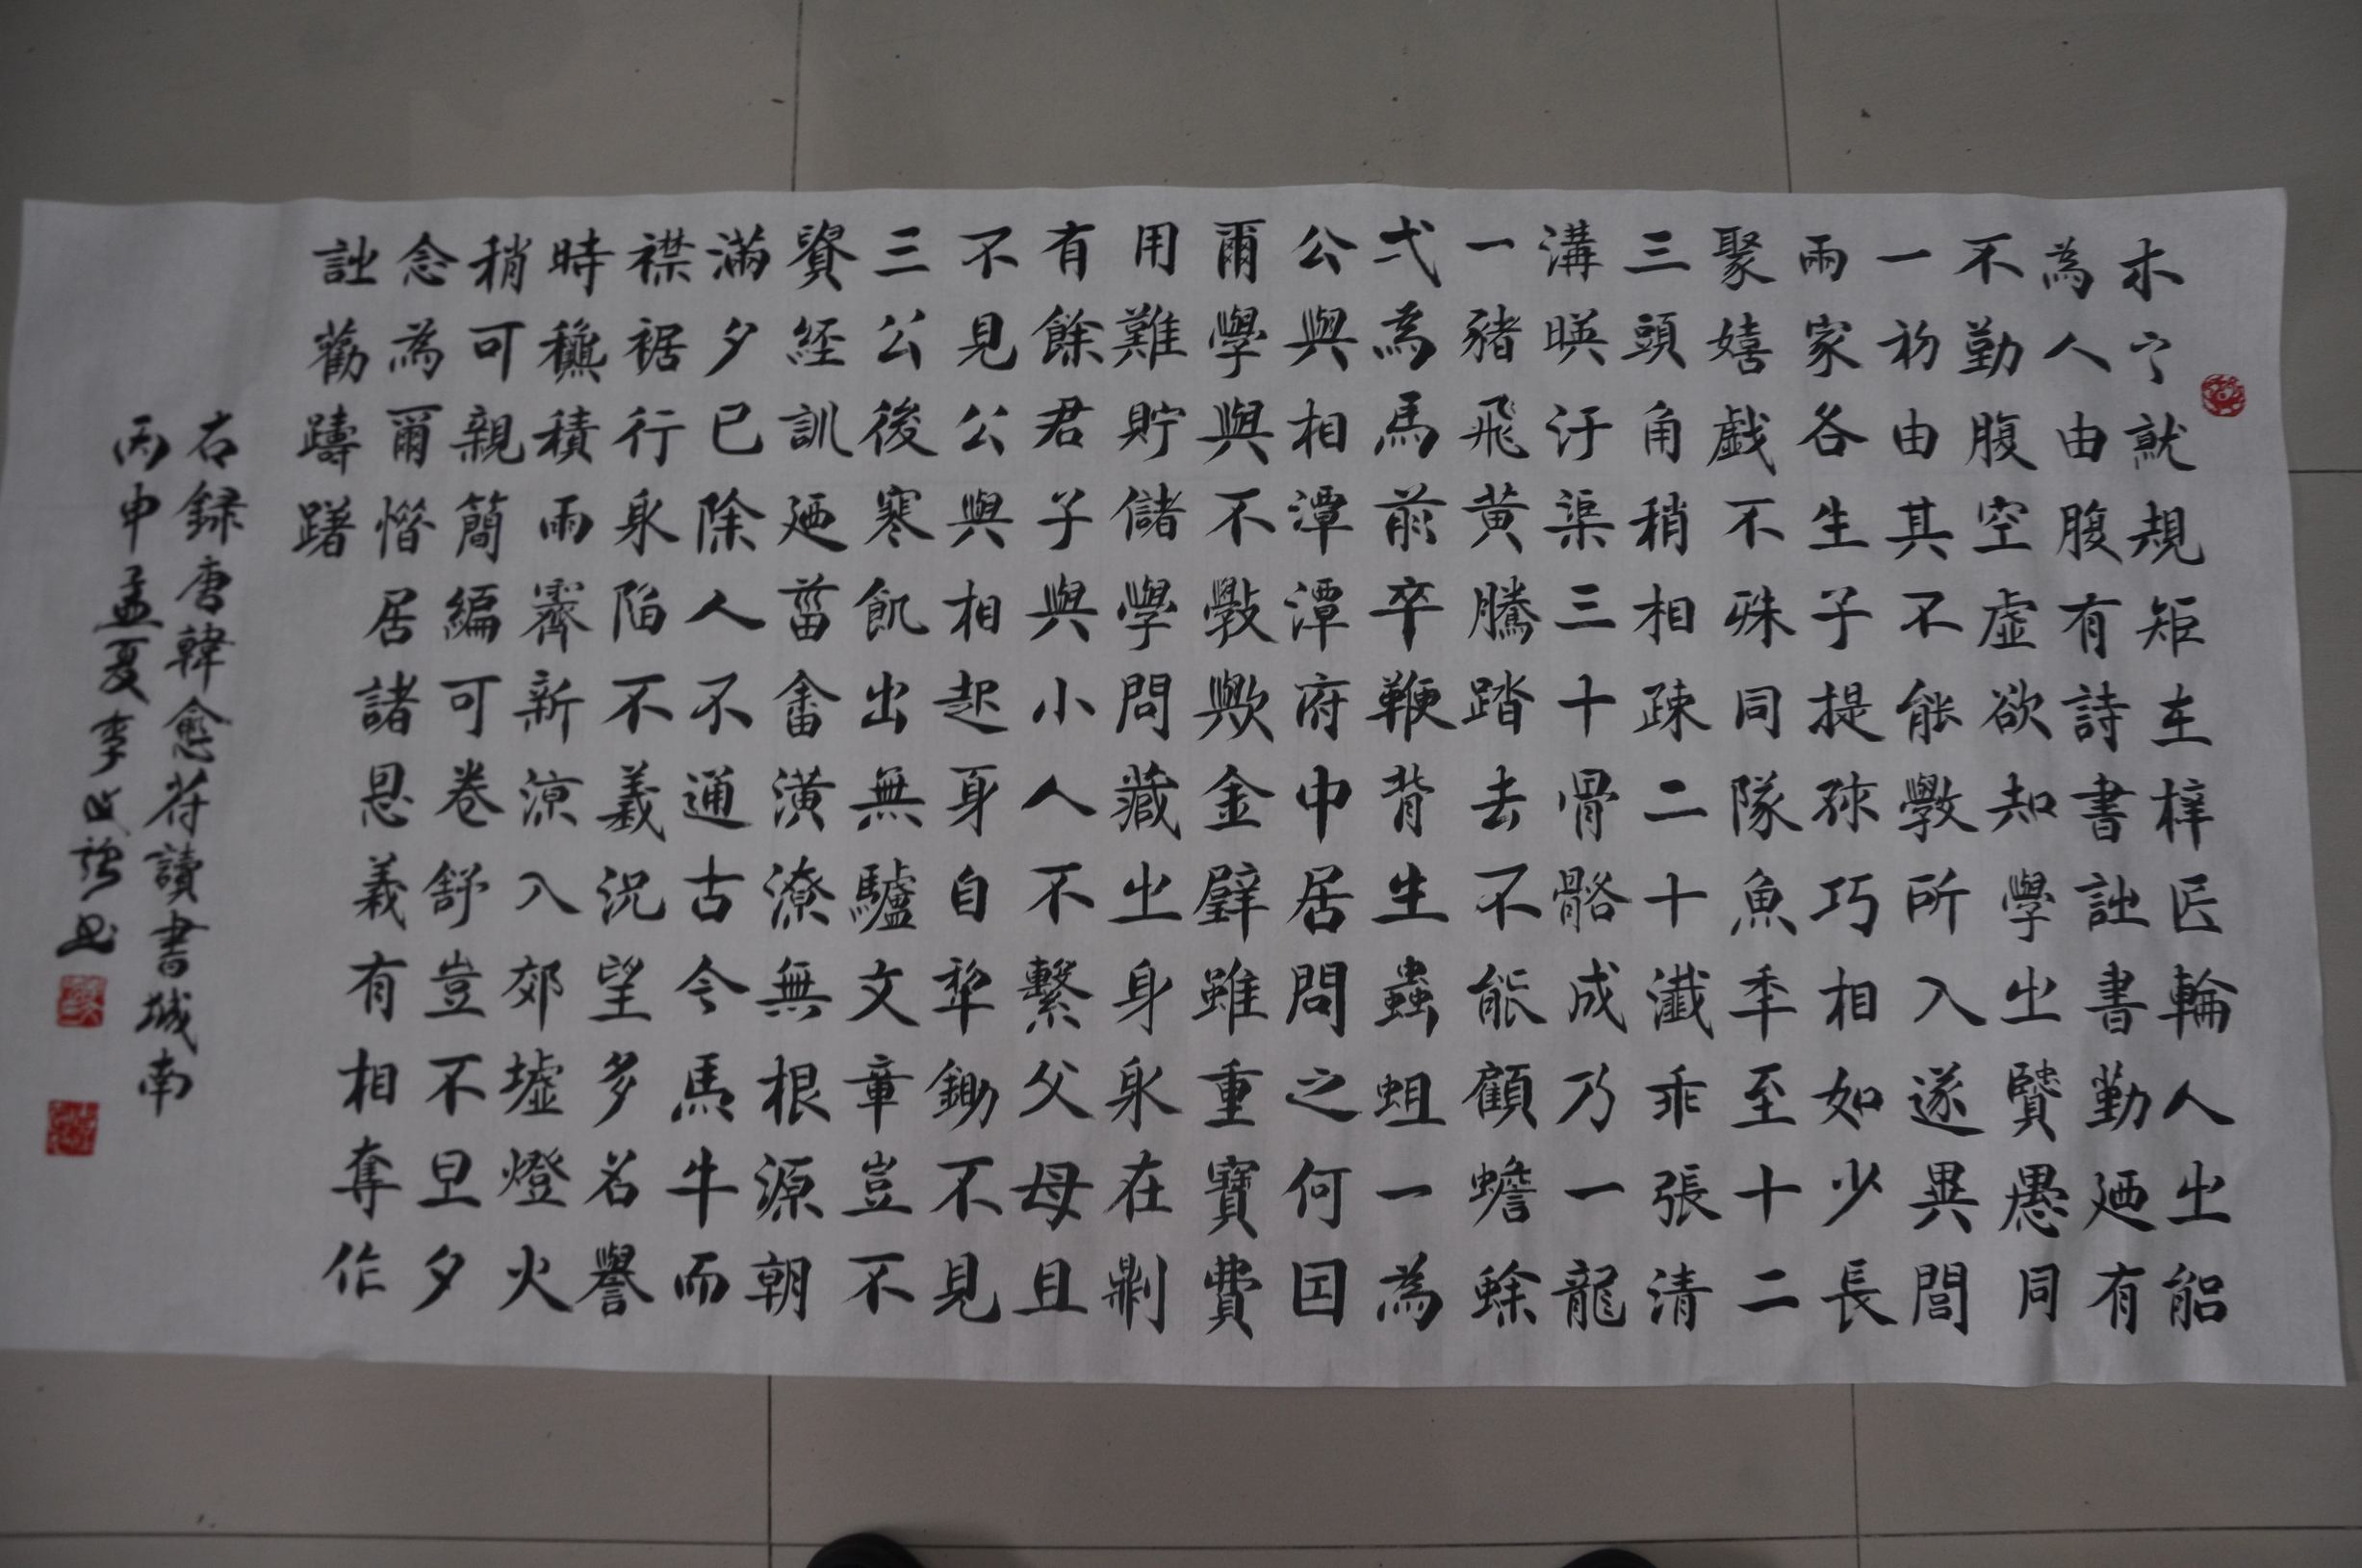 木之就規矩在梓匠輪人之能
為人由腹有詩書詩書勤迺有
不勤腹空虛欲知學之賢愚同
一初由其不能斅所入遂異閭
兩家各生子提孩巧相如少長
聚嬉戲不殊同隊魚年至十二
三頭角稍相疎二十漸乖張清
溝暎汙渠三十骨骼成乃一龍
一豬飛黃騰踏去不能顧蟾蜍
弌為馬前卒鞭背生蟲蛆一為
公與相潭潭府中居問之何因
爾學與不斅歟金璧雖重寶費
用難貯儲學問藏之身身在則
有餘君子與小人不繫父母且
不見公與相起身自犁鋤不見
三公後寒飢出無驢文章豈不
貴經訓迺菑畬潢潦無根源朝
滿夕已除人不通古今馬牛而
襟裾行身陷不義況望多名譽
時穐積雨霽新涼入郊墟燈火
稍可親簡編可卷舒豈不旦夕
念為爾惜居諸恩義有相奪作
詩勸躊躇
右錄唐韓愈符讀書城南
丙申孟夏李